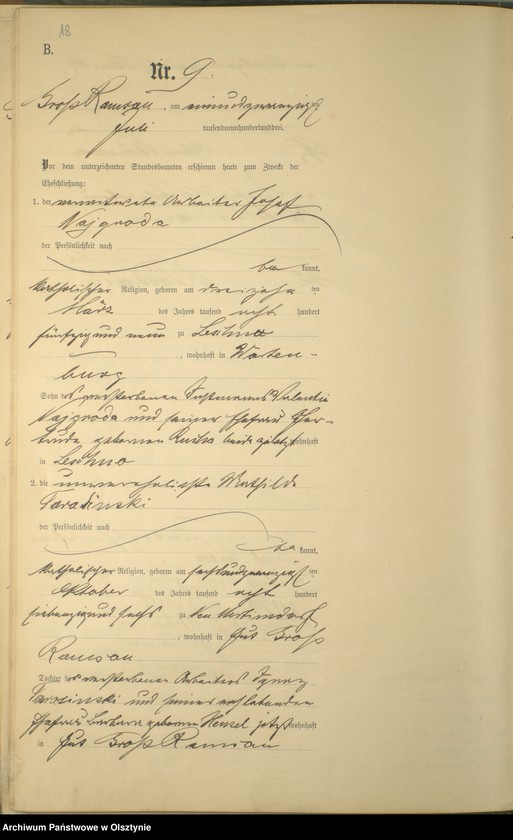 18
B.
Nr. 9.
Groß Ramsau, am einundzwanzigsten
Juli tausendneunhundertunddrei.
Vor dem unterzeichneten Standesbeamten erschienen heute zum Zwecke der
Eheschließung:
1. der Arbeiter Josef
Najgroda
der Persönlichkeit nach
be kannt,
katholischer Religion, geboren am dreizehn ten
März des Jahres tausend acht hundert
fünfzig und neun zu Leschno
, wohnhaft in Warten-
burg
Sohn des verstorbenen Valentin
Najgroda und seiner Ehefrau Ger-
trude geborenen beide zuletzt wohnhaft
in Leschno
2. die unverehelichte Mathilde
Tarasinski
der Persönlichkeit nach
be kannt,
katholischer Religion, geboren am sechsundzwanzigsten
Oktober des Jahres tausend acht hundert
siebenzig und sechs zu Neu Mertinsdorf
, wohnhaft in Gut Groß
Ramsau
Tochter des verstorbenen Arbeiters Ignaz
Tarasinski und seiner noch lebenden
Ehefrau Barbara geborenen Hensel jetzt wohnhaft
in Gut Groß Ramsau
Archiwum Państwowe w Olsztynie